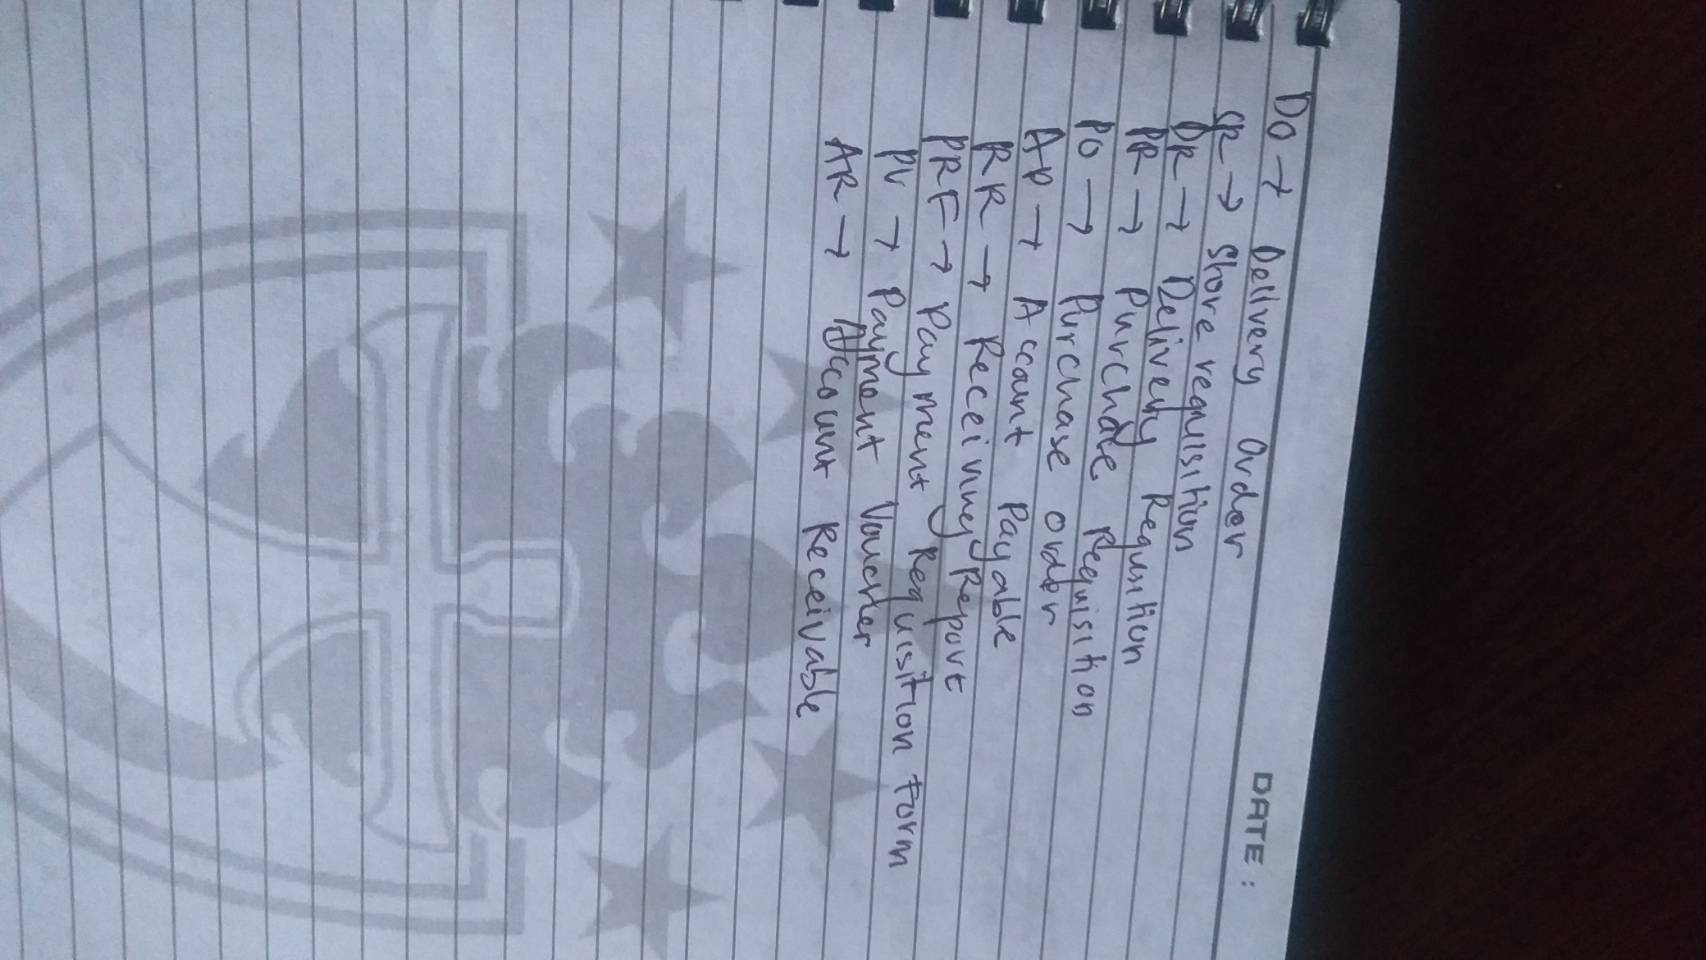 DATE :
DO → Delivery Order
SR → Store requisition
DR → Delivery Requisition
PR → Purchase Requisition
PO → Purchase order
AP → Account Payable
RR → Receiving Report
PRF → Payment Requisition Form
PV → Payment Voucher
AR → Account Receivable